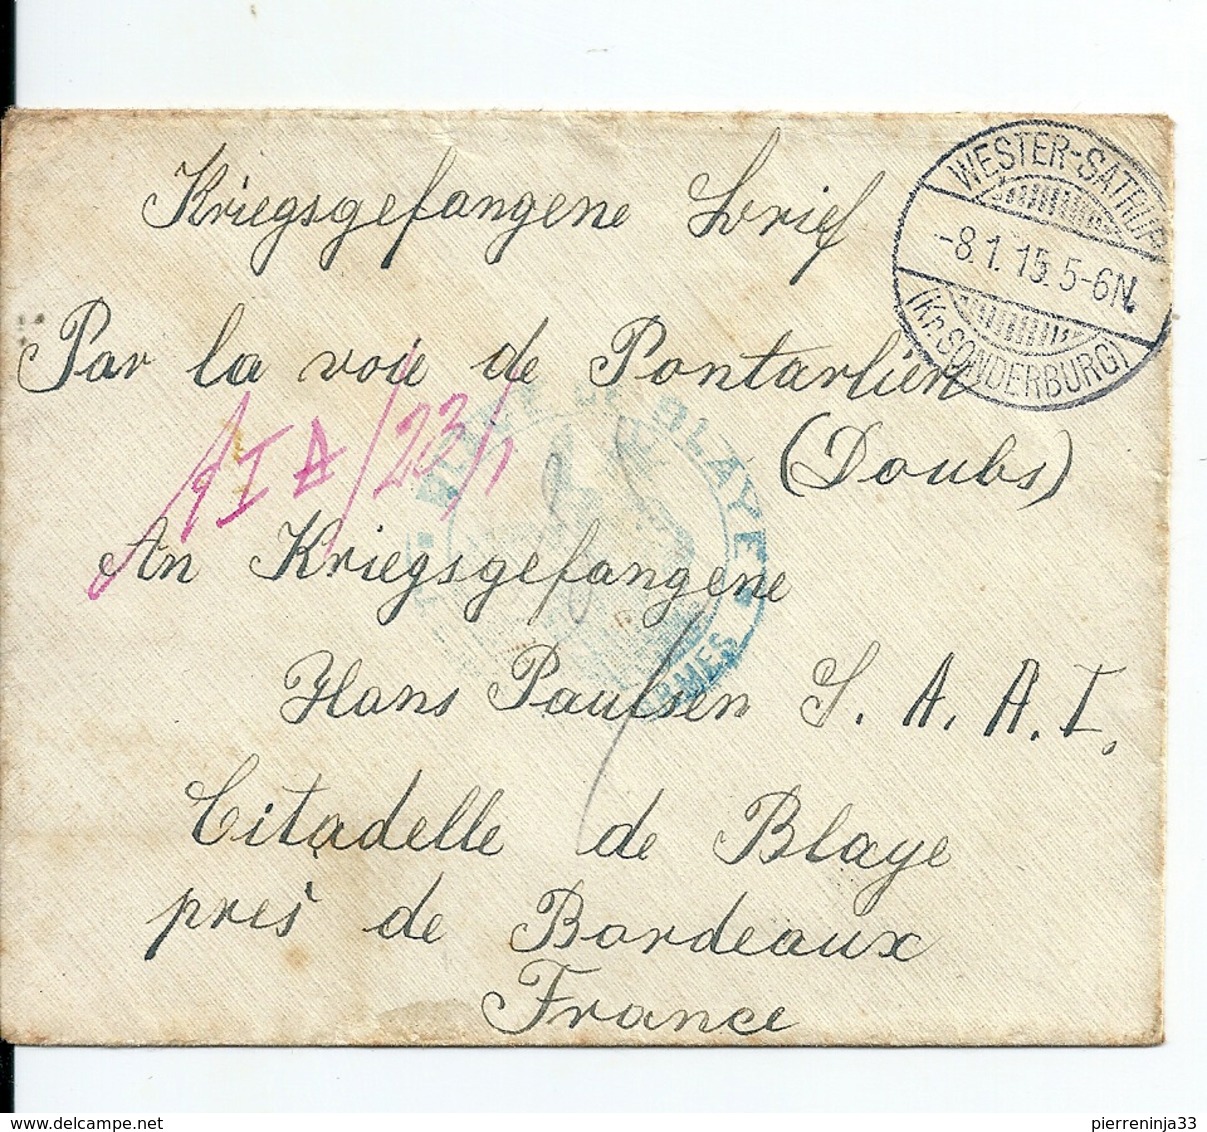 Kriegsgefangene Brief
WESTER-SATRUP
-8.1.15. 5-6N.
(Kr. SONDERBURG)
Par la voie de Pontarlier
(Doubs)
PLACE DE BLAYE
An Kriegsgefangene
Hans Paulsen S. A. A. I.
Citadelle de Blaye
près de Bordeaux
France
pierreninja33